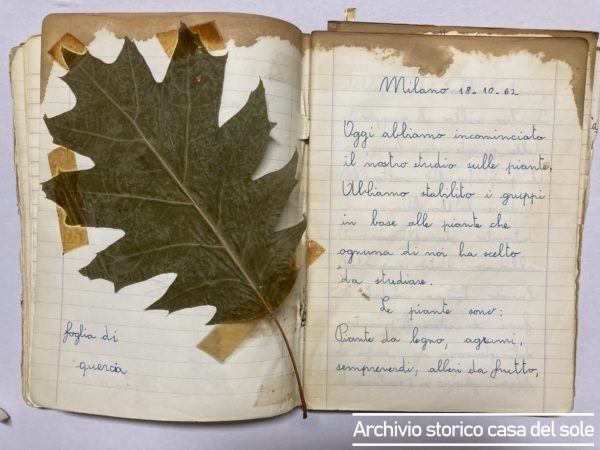 foglia di
quercia
Milano 18-10-62
Oggi abbiamo incominciato
il nostro studio sulle piante.
Abbiamo stabilito i gruppi
in base alle piante che
ognuna di noi ha scelto
da studiare.
Le piante sono:
Piante da legno, agrumi,
sempreverdi, alberi da frutto,
Archivio storico casa del sole